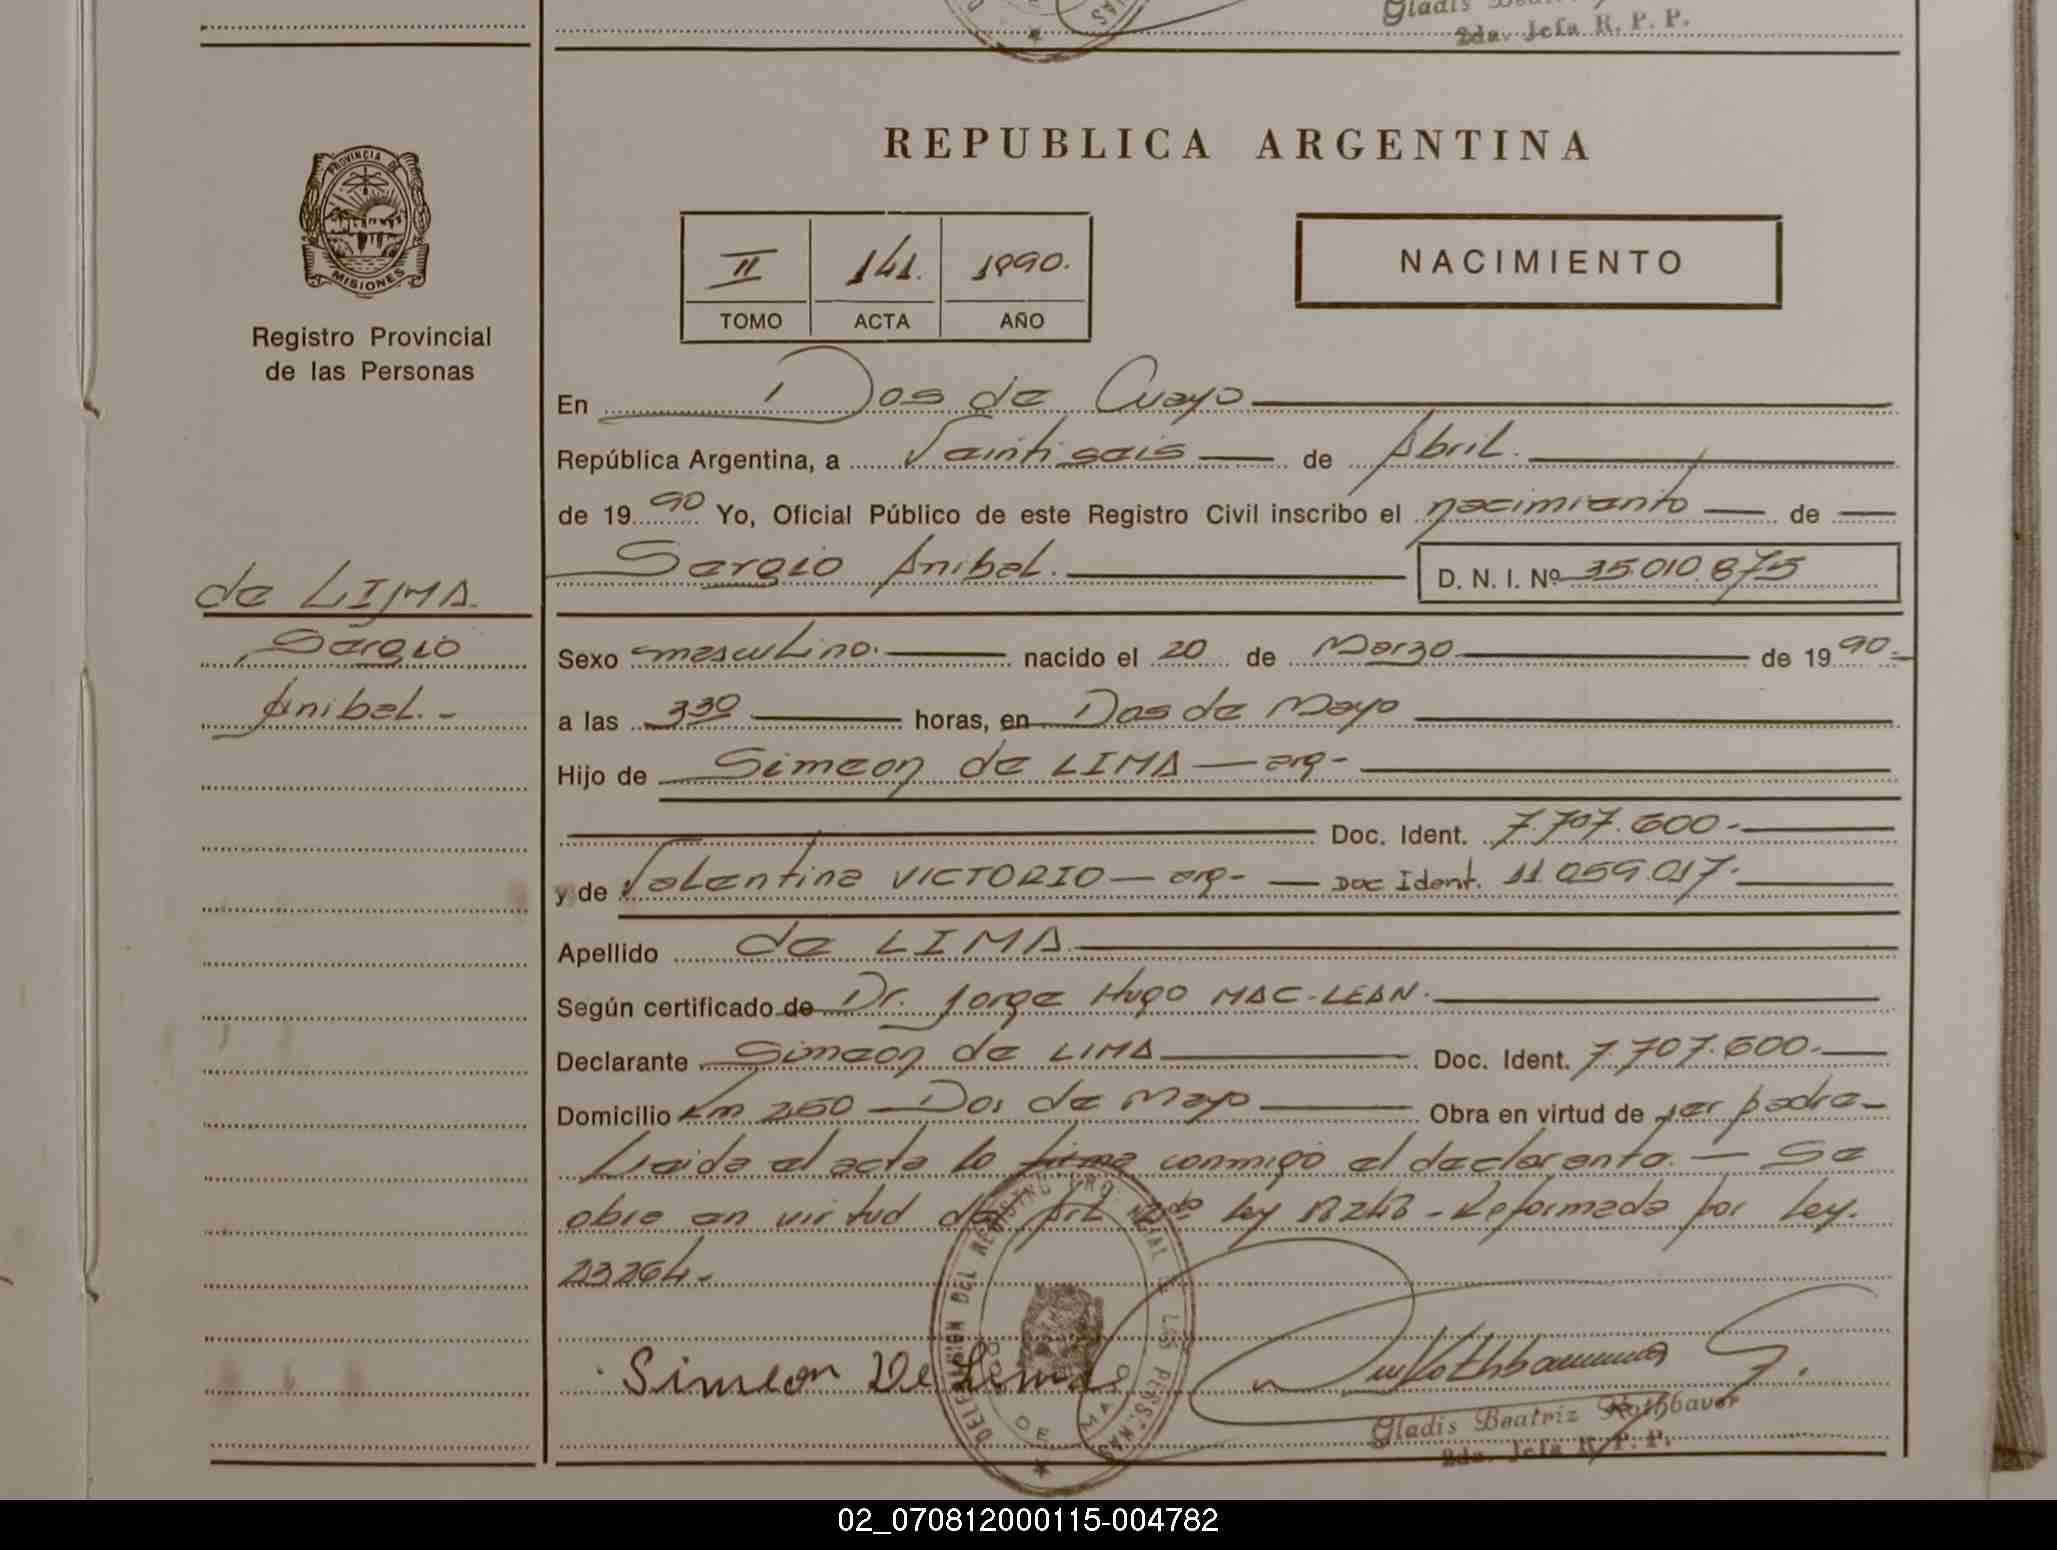 Gladis
2da. Jefa R. P. P.
REPUBLICA ARGENTINA
PROVINCIA DE
MISIONES
Registro Provincial
de las Personas
II 141. 1990.
TOMO ACTA AÑO
NACIMIENTO
En Dos de Mayo
República Argentina, a Veintiseis de Abril.
de 1990 Yo, Oficial Público de este Registro Civil inscribo el nacimiento de
Sergio Anibal. D. N. I. Nº 35.010.875
de LIMA.
Sergio
Anibal.-
Sexo masculino. nacido el 20 de Marzo de 1990.-
a las 3.30 horas, en Dos de Mayo
Hijo de Simeon de LIMA — arg-
Doc. Ident. 7.707.600.-
y de Valentina VICTORIO — arg- — Doc Ident. 11.059.017.-
Apellido de LIMA.
Según certificado de Dr. Jorge Hugo MAC-LEAN.
Declarante Simeon de LIMA Doc. Ident. 7.707.600.-
Domicilio Km 250 - Dos de Mayo Obra en virtud de ser padre-
Leida el acta lo firma conmigo el declarante. — Se
obra en virtud del Art 2do ley 18248 - Reformada por Ley.
23264.-
Simeon De Lima
DELEGACION DEL REGISTRO PROVINCIAL DE LAS PERSONAS
DOS DE MAYO
Gladis Beatriz Rothbaver
2da. Jefa R. P. P.
02_070812000115-004782